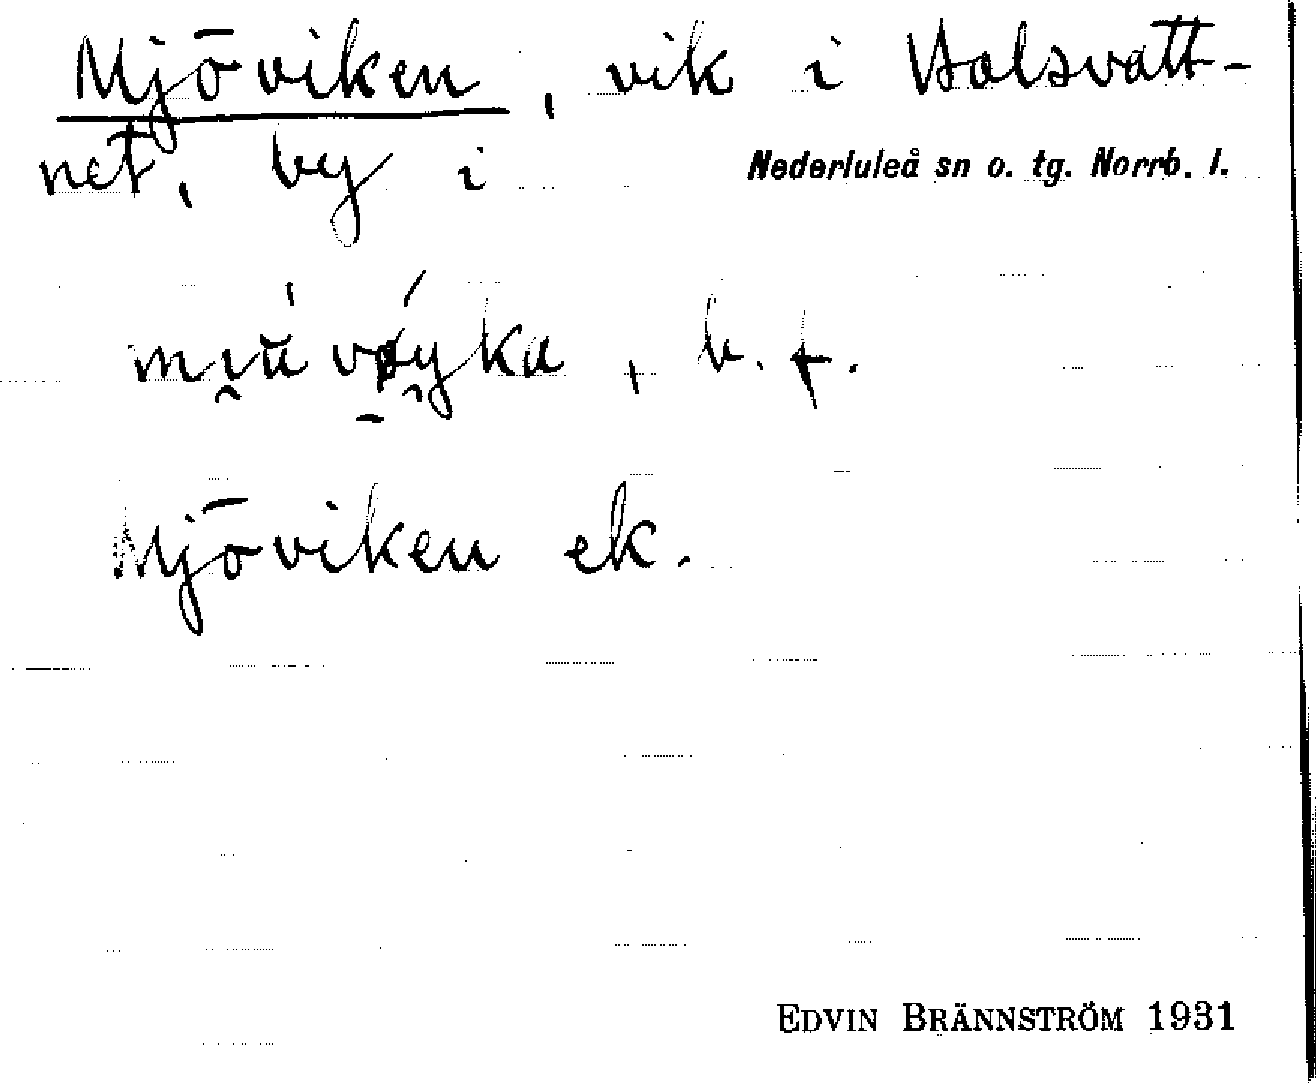 Mjöviken, vik i Holsvatt-
net, by i Nederluleå sn o. tg. Norrb. l.
b. f.
Mjöviken ek.
EDVIN BRÄNNSTRÖM 1931